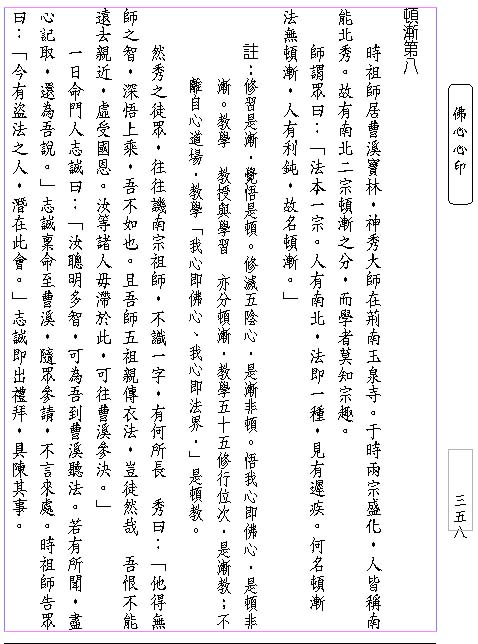 佛心心印
三五八
頓漸第八
時祖師居曹溪寶林，神秀大師在荊南玉泉寺。于時兩宗盛化，人皆稱南
能北秀。故有南北二宗頓漸之分，而學者莫知宗趣。
師謂眾曰：「法本一宗。人有南北，法即一種，見有遲疾。何名頓漸
法無頓漸，人有利鈍，故名頓漸。」
註：修習是漸，覺悟是頓。修滅五陰心，是漸非頓。悟我心即佛心，是頓非
漸。教學　教授與學習　亦分頓漸，教學五十五修行位次，是漸教；不
離自心道場，教學「我心即佛心、我心即法界，」是頓教。
然秀之徒眾，往往譏南宗祖師，不識一字，有何所長　秀曰：「他得無
師之智，深悟上乘，吾不如也。且吾師五祖親傳衣法，豈徒然哉　吾恨不能
遠去親近，虛受國恩。汝等諸人毋滯於此，可往曹溪參決。」
一日命門人志誠曰：「汝聰明多智，可為吾到曹溪聽法。若有所聞，盡
心記取，還為吾說。」志誠稟命至曹溪，隨眾參請，不言來處。時祖師告眾
曰：「今有盜法之人，潛在此會。」志誠即出禮拜，具陳其事。